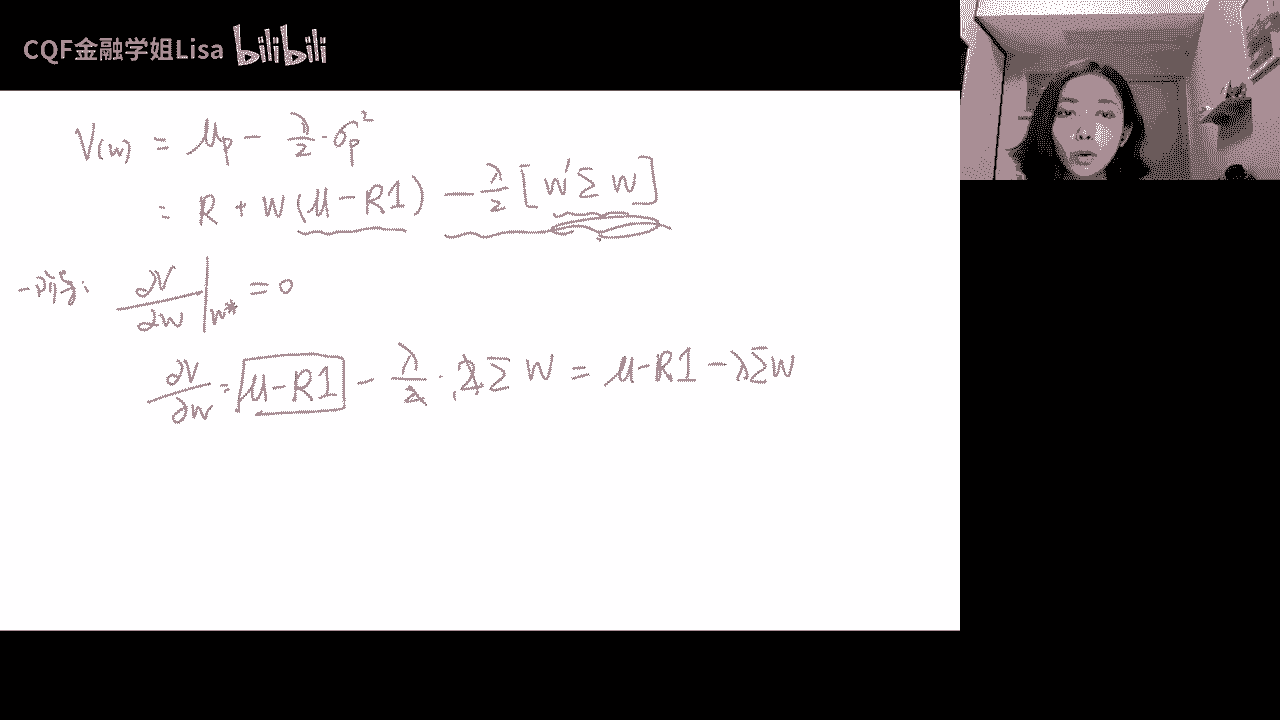 CQF金融学姐Lisa bilibili
V(w) = μp − λ/2 · σp²
= R + W(μ − R1) − λ/2 [w′Σw]
一阶导: ∂V/∂w |w* = 0
∂V/∂w = μ−R1 − λ/2 · 2Σ W = μ−R1 − λΣW